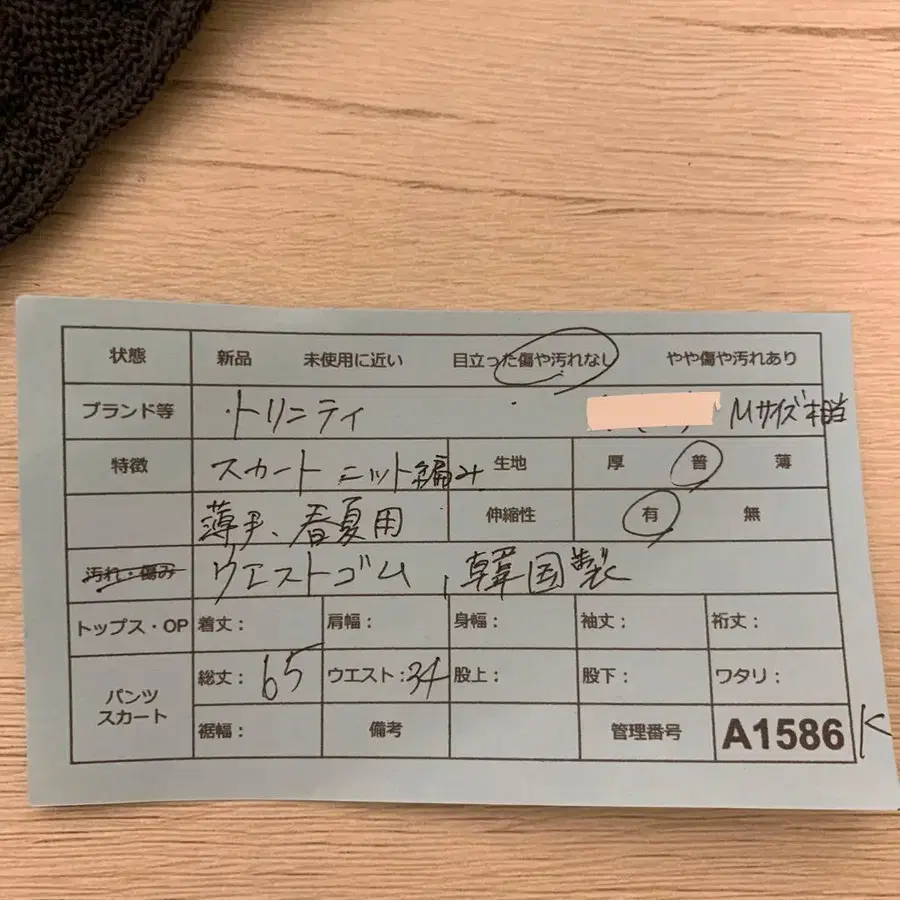 状態 新品 未使用に近い 目立った傷や汚れなし やや傷や汚れあり
ブランド等 トリニティ Mサイズ相当
特徴 スカート ニット編み 生地 厚 普 薄
薄手、春夏用 伸縮性 有 無
汚れ・傷み ウエストゴム、韓国製
トップス・OP 着丈: 肩幅: 身幅: 袖丈: 裄丈:
パンツ スカート 総丈: 65 ウエスト:34 股上: 股下: ワタリ:
裾幅: 備考 管理番号 A1586 K